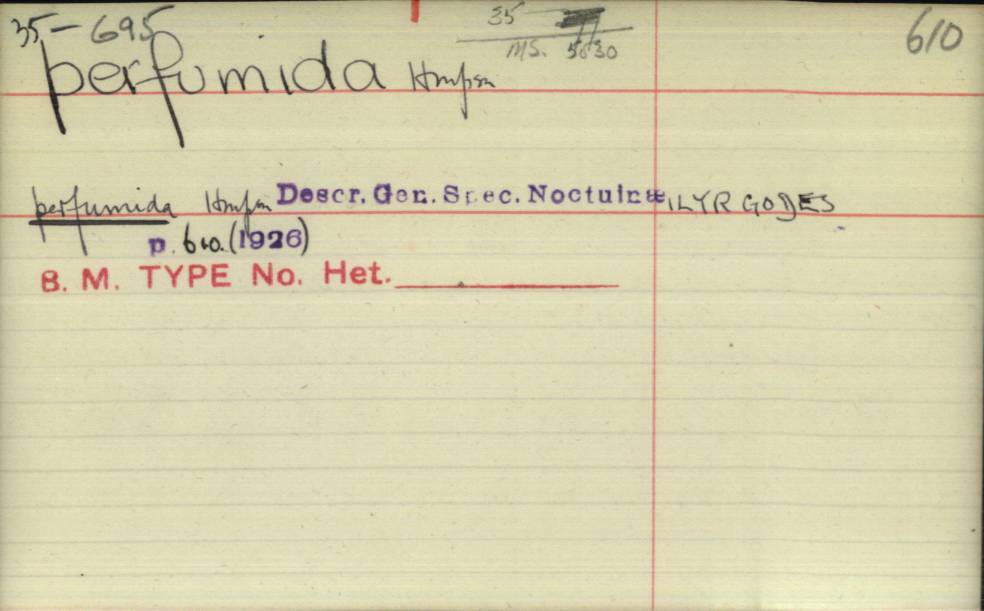 35-695
35
MS. 5630
610
perfumida Hmpsn
perfumida Hmpsn Descr. Gen. Spec. Noctuinæ ILYRGODES
p. 610. (1926)
B. M. TYPE No. Het.